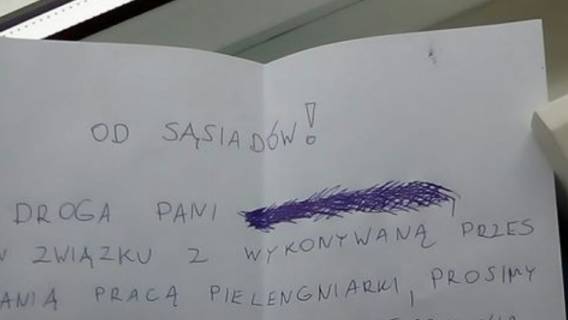 OD SĄSIADÓW!
DROGA PANI
W ZWIĄZKU Z WYKONYWANĄ PRZES
PANIĄ PRACĄ PIELENGNIARKI, PROSIMY